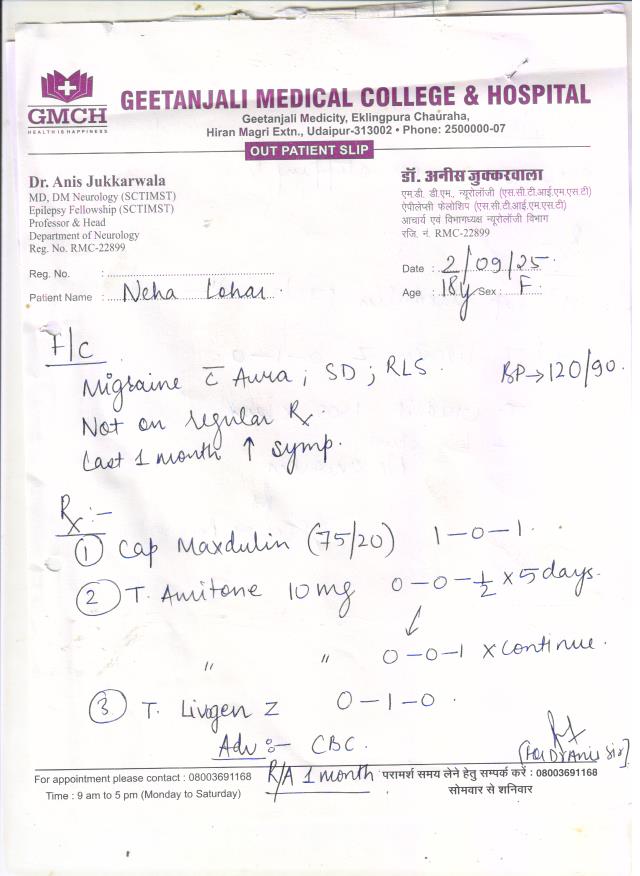 GMCH
HEALTH IS HAPPINESS
GEETANJALI MEDICAL COLLEGE & HOSPITAL
Geetanjali Medicity, Eklingpura Chauraha,
Hiran Magri Extn., Udaipur-313002 • Phone: 2500000-07
OUT PATIENT SLIP
Dr. Anis Jukkarwala
MD, DM Neurology (SCTIMST)
Epilepsy Fellowship (SCTIMST)
Professor & Head
Department of Neurology
Reg. No. RMC-22899
डॉ. अनीस जुक्करवाला
एम.डी. डी.एम., न्यूरोलॉजी (एस.सी.टी.आई.एम.एस.टी)
ऐपीलेप्सी फेलोशिप (एस.सी.टी.आई.एम.एस.टी)
आचार्य एवं विभागध्यक्ष न्यूरोलॉजी विभाग
रजि. नं. RMC-22899
Reg. No. :
Date : 2/09/25
Patient Name : Neha Lohar
Age : 18y Sex : F
F/C
Migraine c̅ Aura ; SD ; RLS. BP → 120/90.
Not on regular Rx.
Last 1 month ↑ symp.
Rx :-
① Cap Maxdulin (75/20) 1-0-1.
② T. Amitone 10 mg 0-0-½ x 5 days.
↓
" " 0-0-1 x continue.
③ T. Livogen Z 0-1-0.
Adv :- CBC.
[For Dr Anis Sir]
R/A 1 month
For appointment please contact : 08003691168
Time : 9 am to 5 pm (Monday to Saturday)
परामर्श समय लेने हेतु सम्पर्क करें : 08003691168
सोमवार से शनिवार